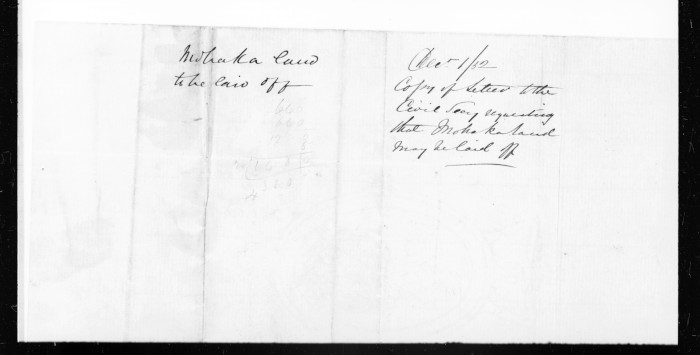 Mohaka land
to be laid off
640
640
Decr 1/52
Copy of Letter to the
Civil Secy requesting
that Mohaka land
may be laid off